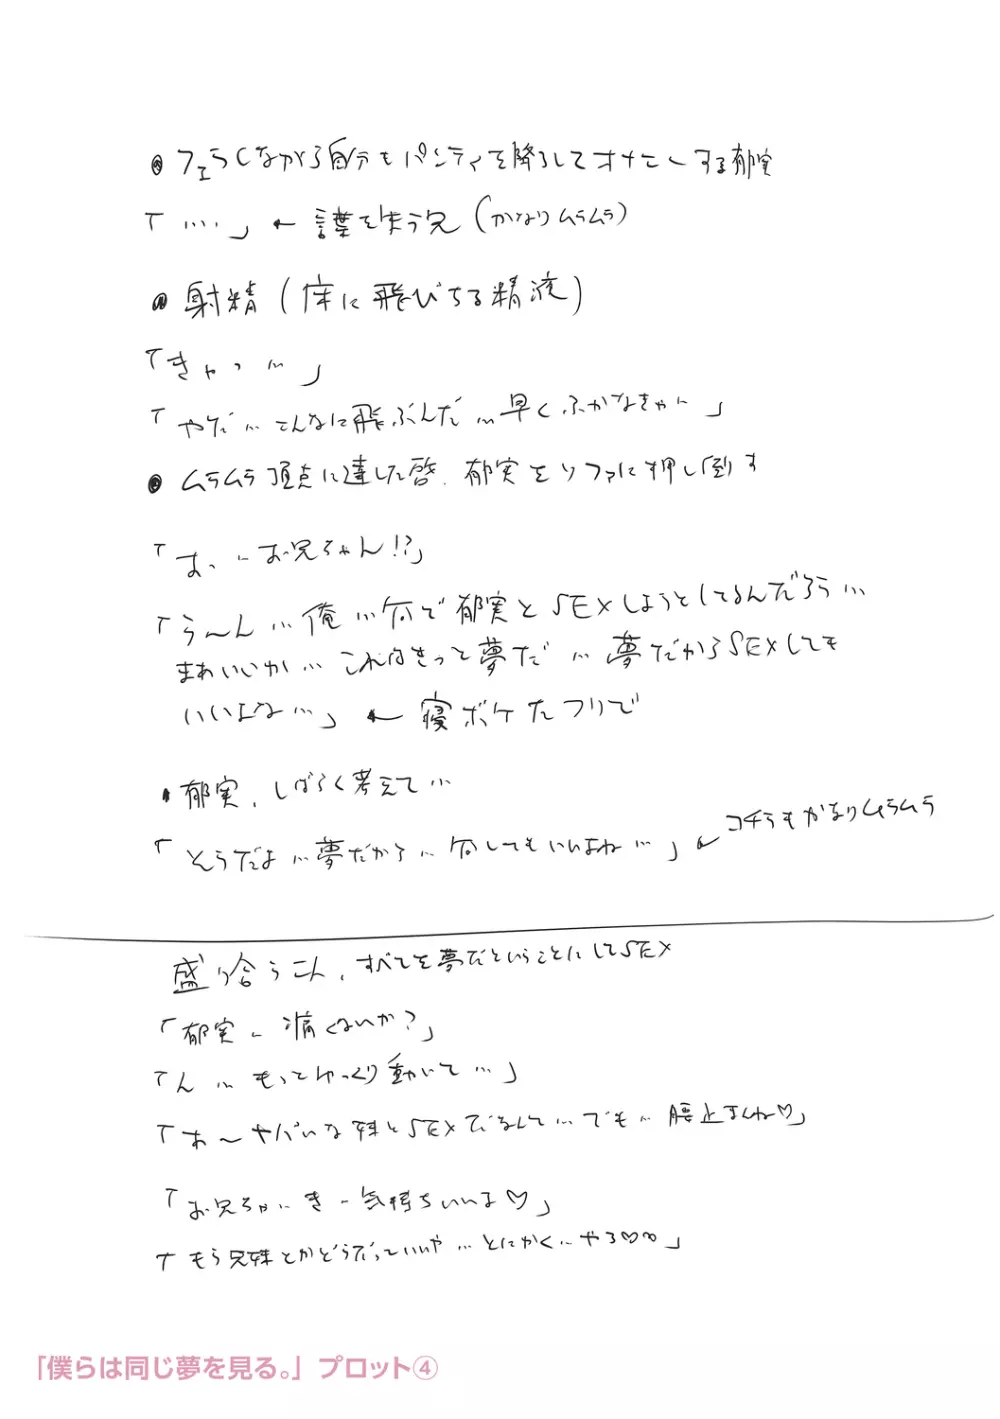 ●フェラしながら自分もパンティを降ろしてオナニーする郁実
「….」←言葉を失う兄(かなりムラムラ)
●射精(床に飛びちる精液)
「きゃっ…」
「やだ…こんなに飛ぶんだ…早くふかなきゃ…」
●ムラムラ頂点に達した啓、郁実をソファに押し倒す
「あっ…お兄ちゃん!?」
「う〜ん…俺…何で郁実とSEXしようとしてるんだろう…
まあいいか…これはきっと夢だ…夢だからSEXしても
いいよな…」←寝ボケたフリで
・郁実、しばらく考えて…
「そうだよ…夢だから…何してもいいよね…」←コチラもかなりムラムラ
盛り合う二人、すべてを夢だということにしてSEX
「郁実…痛くないか?」
「ん…もっとゆっくり動いて…」
「あ〜ヤバいな妹とSEXだなんて…でも…腰止まんね♡」
「お兄ちゃ…き…気持ちいいよ♡」
「もう兄妹とかどうだっていいや…とにかく…やる♡♡」
「僕らは同じ夢を見る。」プロット④